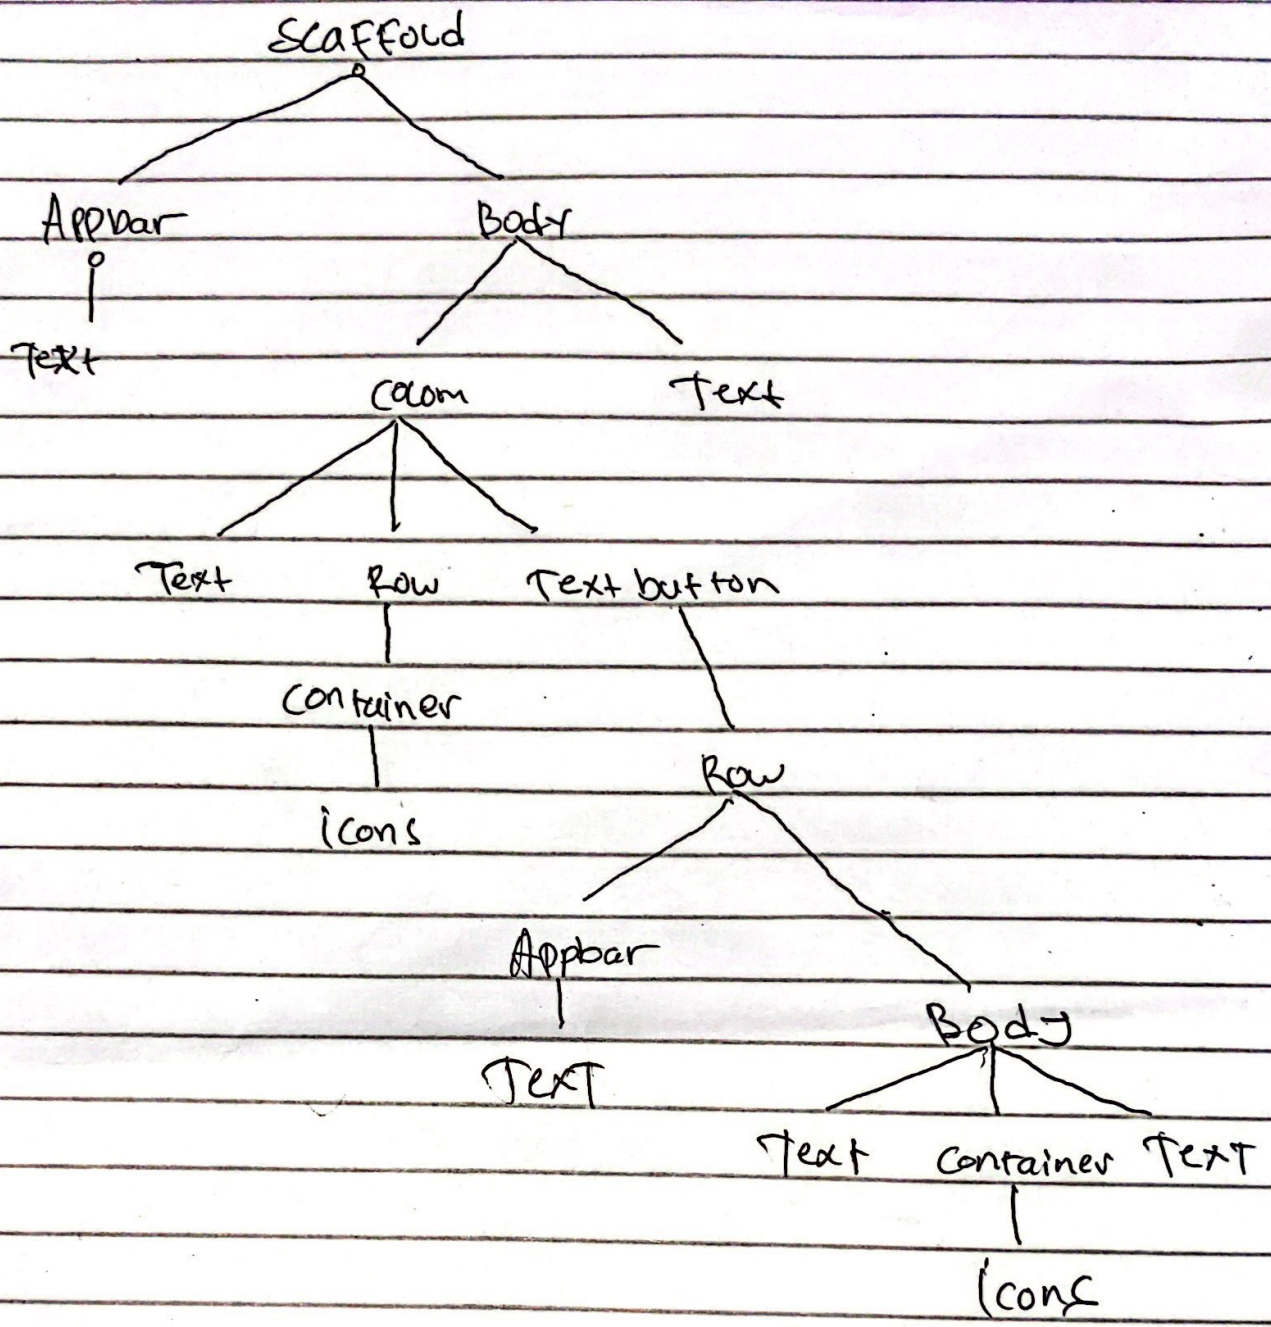 Scaffold
Appbar Body
Text
Colom Text
Text Row Text button
Container
Row
icons
Appbar
Body
Text
Text Container Text
icons